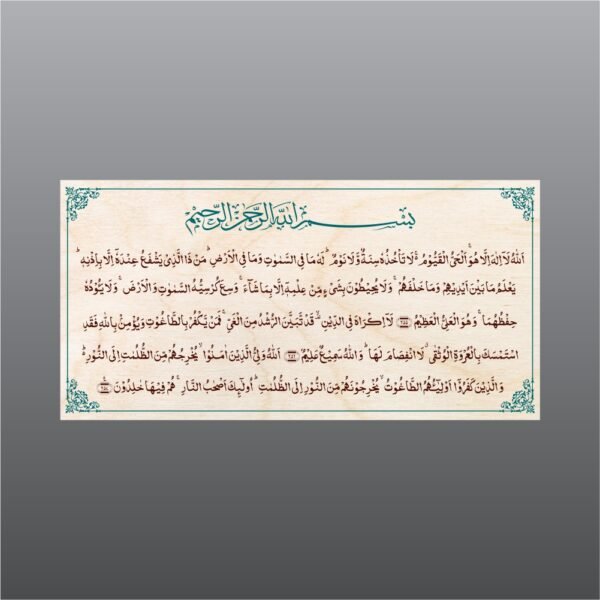 بِسْمِ اللهِ الرَّحْمٰنِ الرَّحِيْمِ
اَللهُ لَآ اِلٰهَ اِلَّا هُوَۚ اَلْحَيُّ الْقَيُّوْمُ ەۚ لَا تَأْخُذُهٗ سِنَةٌ وَّلَا نَوْمٌؕ لَهٗ مَا فِى السَّمٰوٰتِ وَمَا فِى الْاَرْضِؕ مَنْ ذَا الَّذِىْ يَشْفَعُ عِنْدَهٗٓ اِلَّا بِاِذْنِهٖؕ
يَعْلَمُ مَا بَيْنَ اَيْدِيْهِمْ وَمَا خَلْفَهُمْۚ وَلَا يُحِيْطُوْنَ بِشَىْءٍ مِّنْ عِلْمِهٖٓ اِلَّا بِمَا شَآءَۚ وَسِعَ كُرْسِيُّهُ السَّمٰوٰتِ وَالْاَرْضَۚ وَلَا يَئُوْدُهٗ
حِفْظُهُمَاۚ وَهُوَ الْعَلِىُّ الْعَظِيْمُ ﴿۲۵۵﴾ لَآ اِكْرَاهَ فِى الدِّيْنِۙ قَدْ تَّبَيَّنَ الرُّشْدُ مِنَ الْغَىِّۚ فَمَنْ يَّكْفُرْ بِالطَّاغُوْتِ وَيُؤْمِنْۢ بِاللهِ فَقَدِ
اسْتَمْسَكَ بِالْعُرْوَةِ الْوُثْقٰىۗ لَا انْفِصَامَ لَهَاؕ وَاللهُ سَمِيْعٌ عَلِيْمٌ ﴿۲۵۶﴾ اَللهُ وَلِىُّ الَّذِيْنَ اٰمَنُوْاۙ يُخْرِجُهُمْ مِّنَ الظُّلُمٰتِ اِلَى النُّوْرِؕ
وَالَّذِيْنَ كَفَرُوْٓا اَوْلِيٰٓئُهُمُ الطَّاغُوْتُۙ يُخْرِجُوْنَهُمْ مِّنَ النُّوْرِ اِلَى الظُّلُمٰتِؕ اُولٰٓئِكَ اَصْحٰبُ النَّارِۚ هُمْ فِيْهَا خٰلِدُوْنَ ﴿۲۵۷﴾